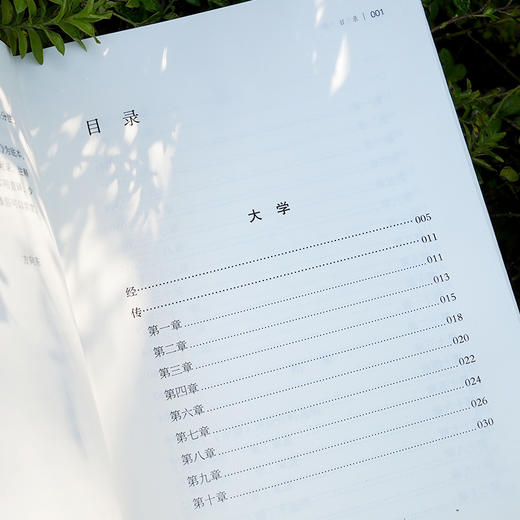 目 录 | 001
目 录
大 学
经……005
传……011
第一章……011
第二章……013
第三章……015
第四章……018
第六章……020
第七章……022
第八章……024
第九章……026
第十章……030
方向东